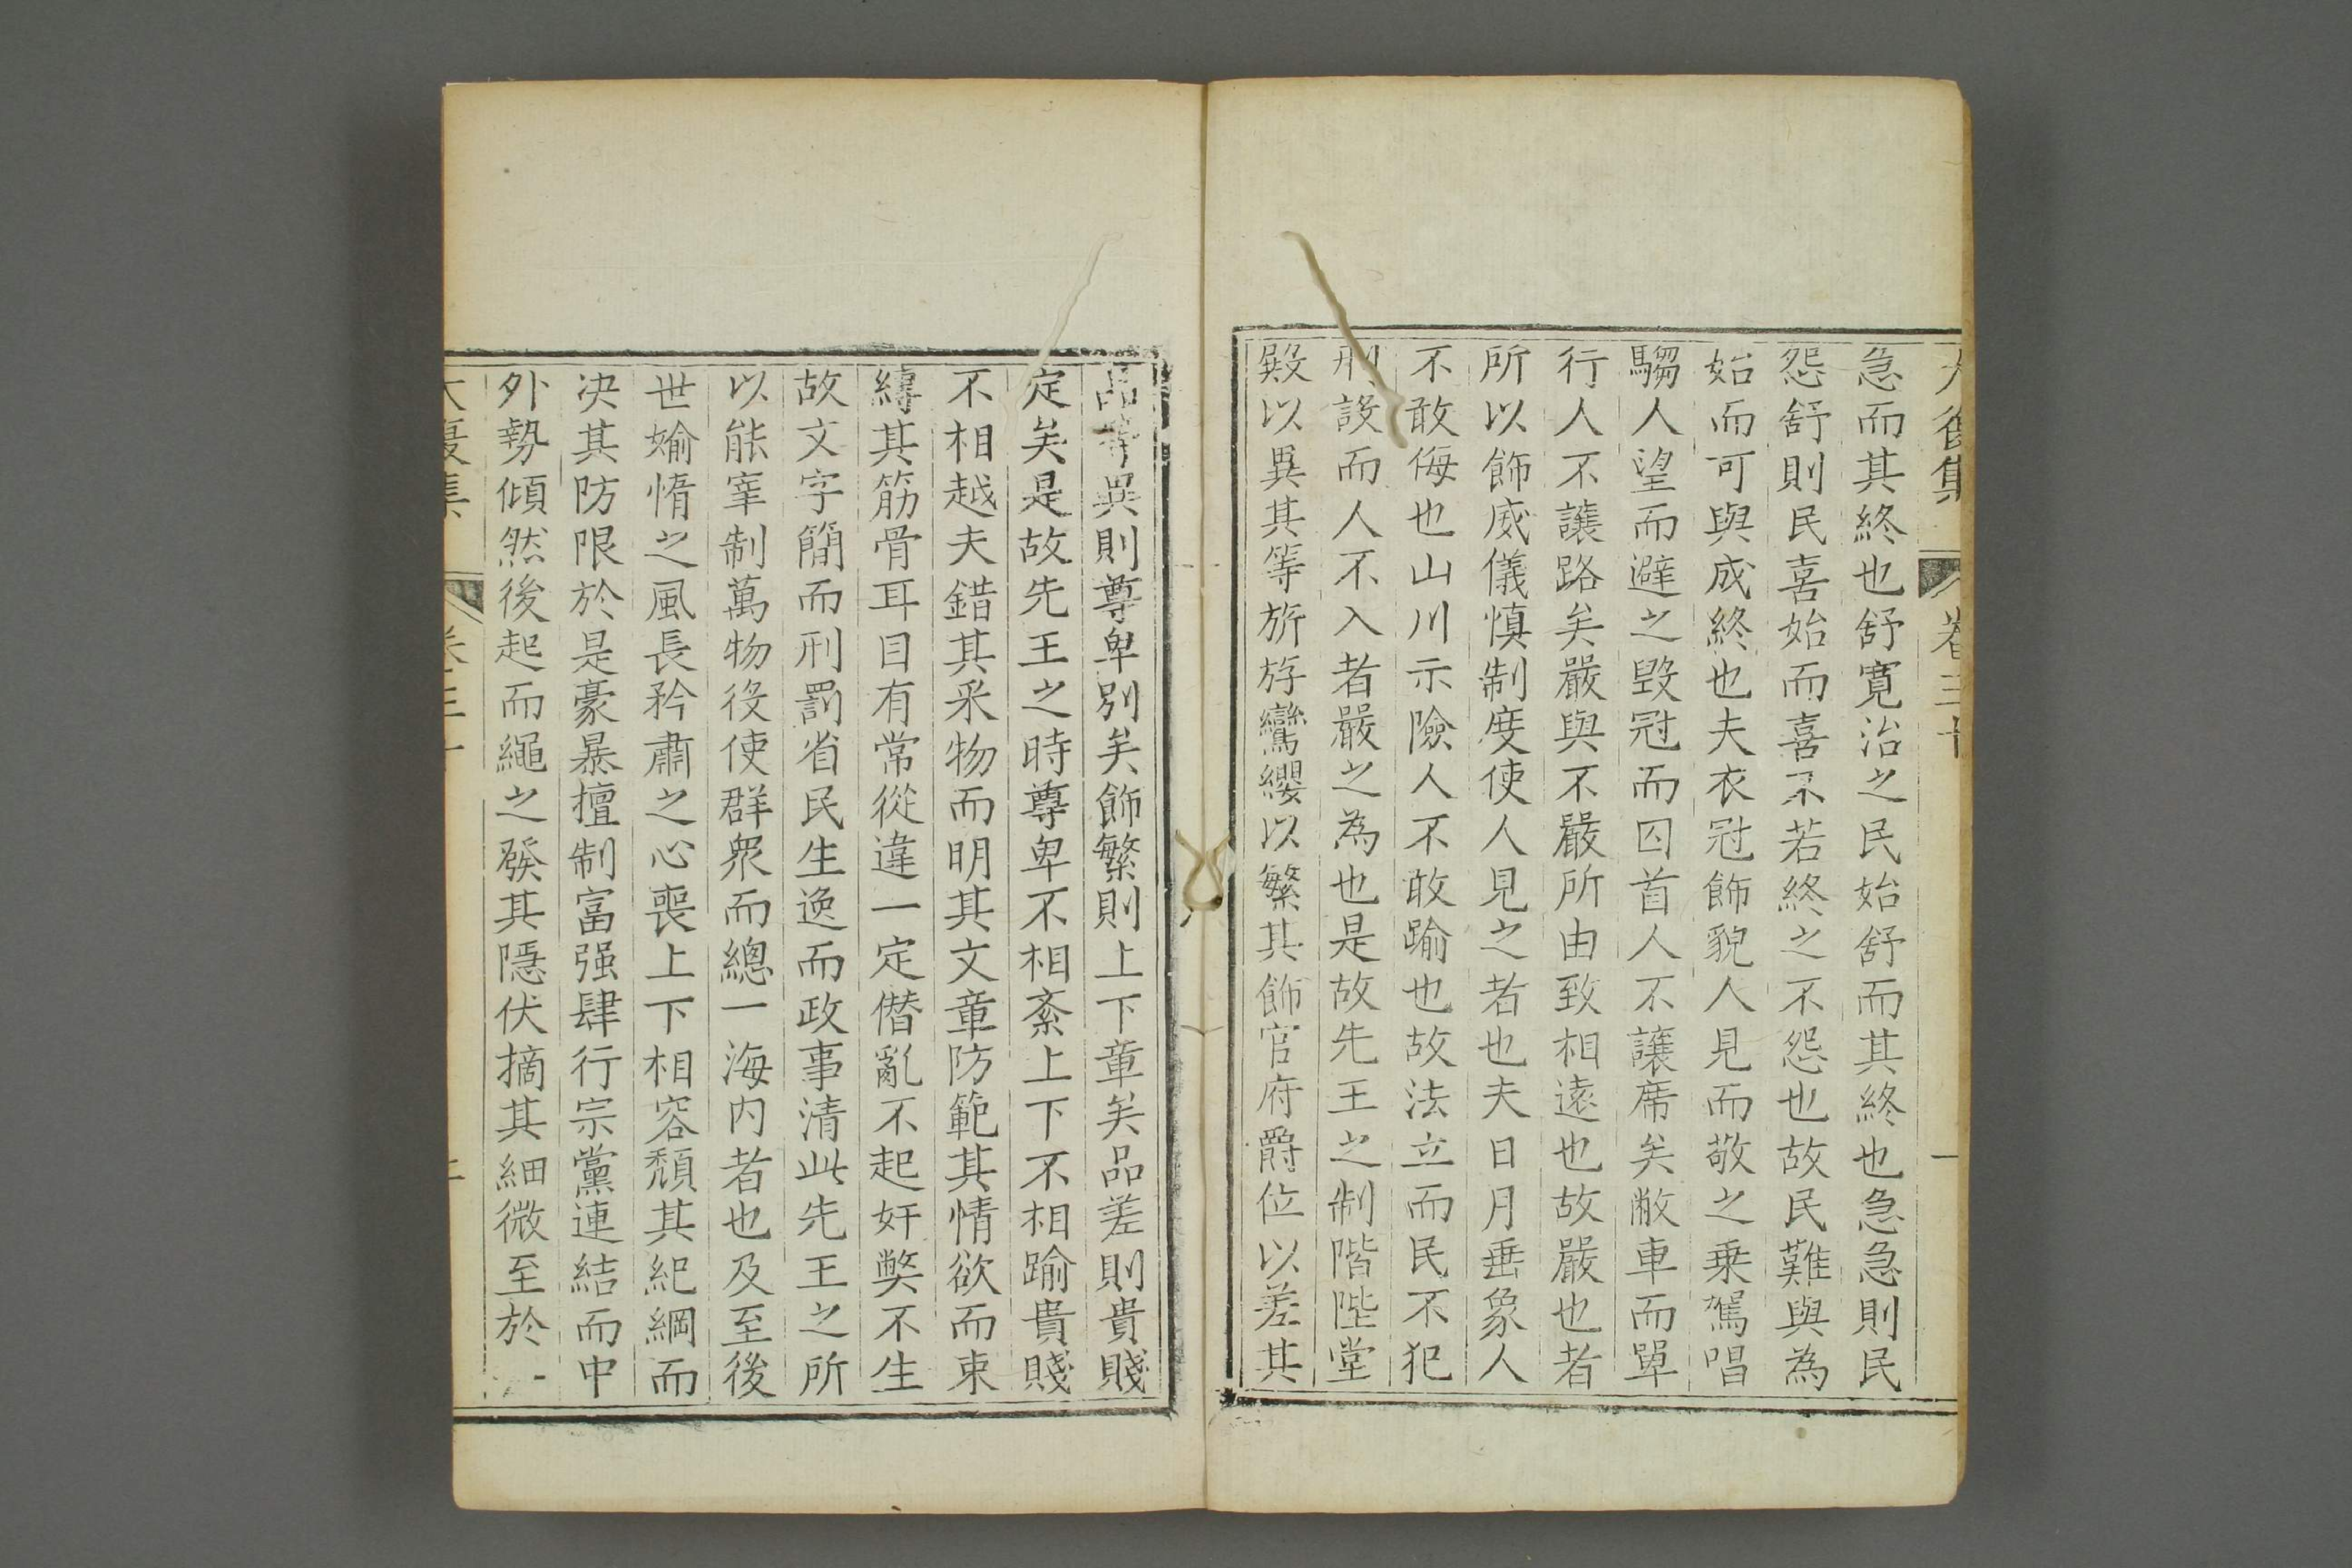 大復集 卷三十 一
急而其終也舒寛治之民始舒而其終也急急則民
怨舒則民喜始而喜不若終之不怨也故民難與為
始而可與成終也夫衣冠飾貌人見而敬之乗駕唱
騶人望而避之毀冠而囚首人不讓席矣敝車而單
行人不讓路矣嚴與不嚴所由致相遠也故嚴也者
所以飾威儀慎制度使人見之者也夫日月垂象人
不敢侮也山川示險人不敢踰也故法立而民不犯
刑設而人不入者嚴之為也是故先王之制階陛堂
殿以異其等旂斿鸞纓以繁其飾官府爵位以差其
品等異則尊卑別矣飾繁則上下章矣品差則貴賤
定矣是故先王之時尊卑不相紊上下不相踰貴賤
不相越夫錯其采物而明其文章防範其情欲而束
縛其筋骨耳目有常從違一定僣亂不起奸獘不生
故文字簡而刑罰省民生逸而政事清此先王之所
以能宰制萬物役使群衆而總一海内者也及至後
世媮惰之風長矜肅之心喪上下相容頹其紀綱而
决其防限於是豪暴擅制富强肆行宗黨連結而中
外勢傾然後起而繩之發其隱伏摘其細微至於一
大復集 卷三十 二